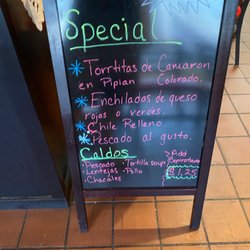 Special
Torrtitas de Camaron
en Pipian Colorado.
Enchiladas de queso
rojas o verdes.
Chile Relleno.
Pescado al gusto.
Caldos
Pescado · Tortilla soup
Lentejas · Pollo
Chacales
Add
$1.25